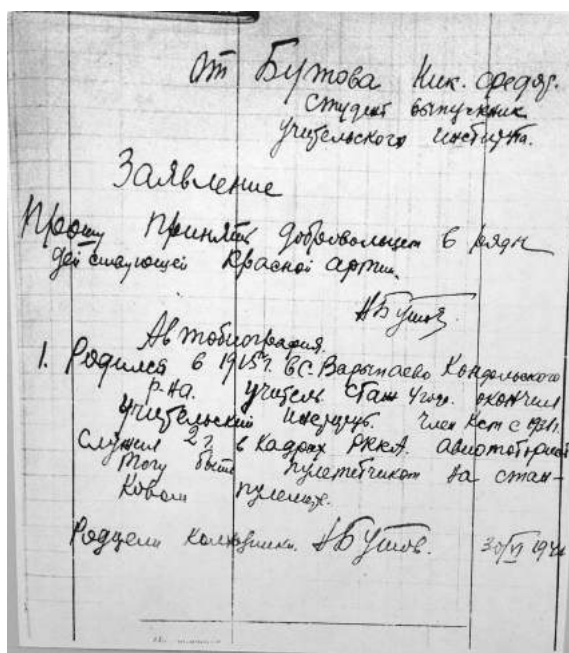 от Бутова Ник. Федор.
студент выпускник
учительского института.
Заявление
Прошу принять добровольцем в ряды
действующей Красной армии.
НБутов
Автобиография.
1. Родился в 1915г. в с. Варыпаево Кондольского
р-на. учитель стаж 4 года. окончил
учительский институт. член ксм с
Служил 2 г. в Кадрах РККА. авиамоторист
могу быть пулеметчиком на стан-
ковом пулемете.
Родители колхозники. НБутов. 30/VI 1941